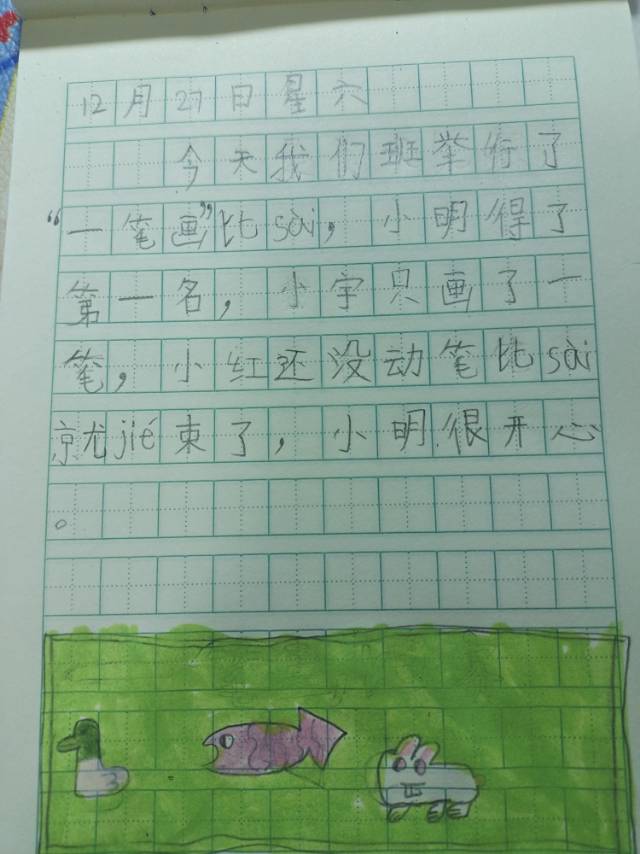 12月27日星六
今天我们班举行了
“一笔画”比sài，小明得了
第一名，小宇只画了一
笔，小红还没动笔比sài
就jié束了，小明很开心
。